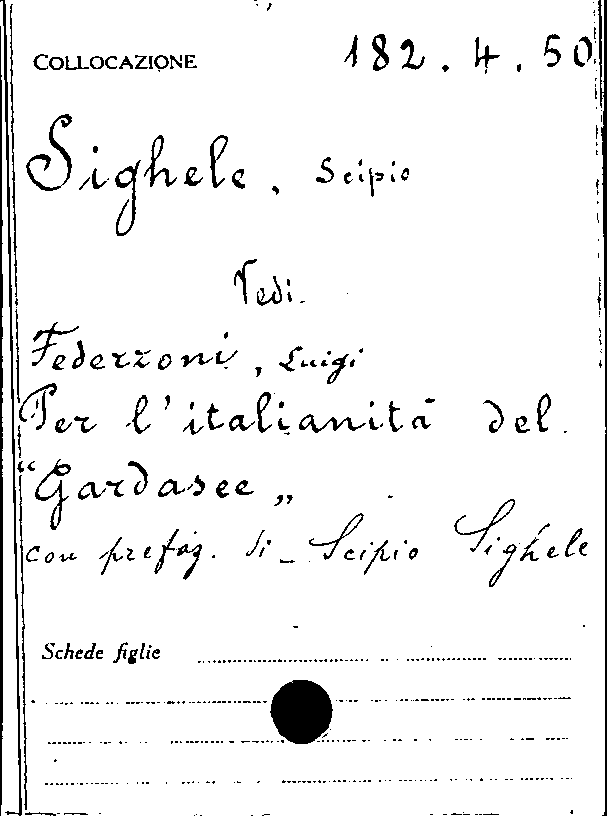 COLLOCAZIONE 182.4.50
Sighele, Scipio
Vedi.
Federzoni, Luigi
Per l'italianità del
"Gardasee„
con prefaz. di - Scipio Sighele
Schede figlie